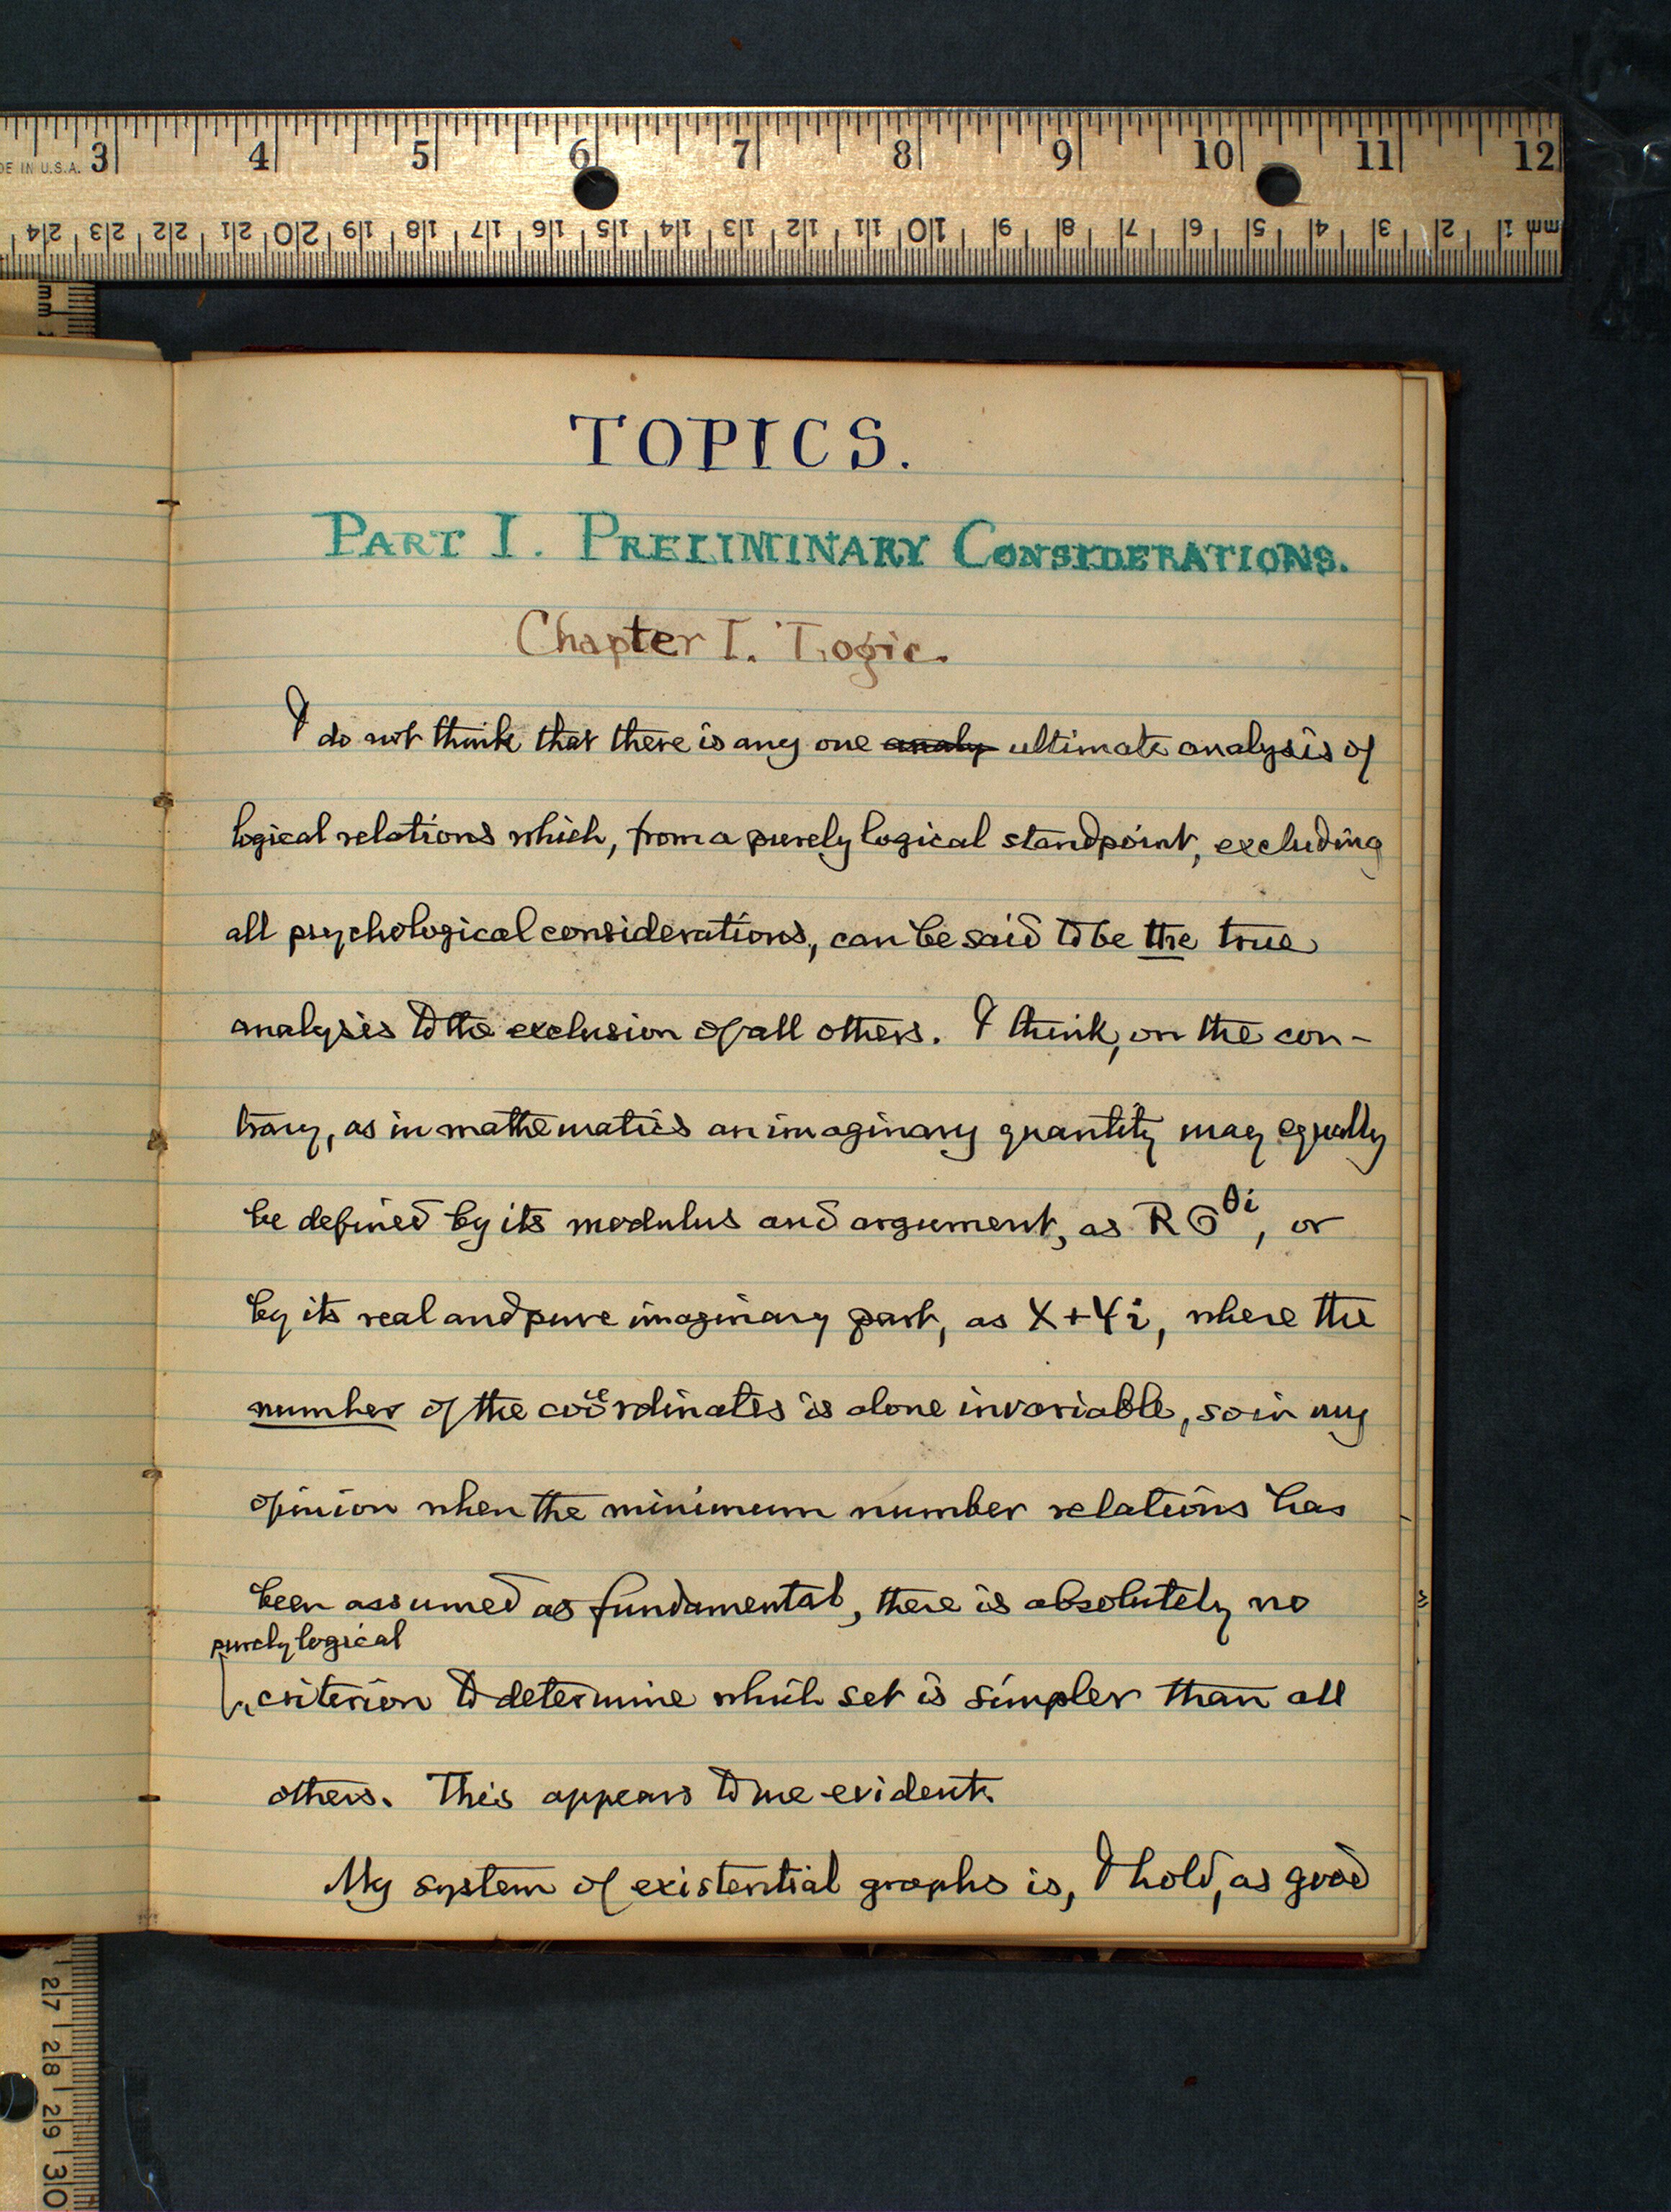 DE IN U.S.A. 3 4 5 6 7 8 9 10 11 12
24 23 22 21 20 19 18 17 16 15 14 13 12 11 10 9 8 7 6 5 4 3 2 1 mm
mm
TOPICS.
PART I. PRELIMINARY CONSIDERATIONS.
Chapter I. Logic.
I do not think that there is any one analy ultimate analysis of
logical relations which, from a purely logical standpoint, excluding
all psychological considerations, can be said to be the true
analysis to the exclusion of all others. I think, on the con-
trary, as in mathematics an imaginary quantity may equally
be defined by its modulus and argument, as R ϭ^θi, or
by its real and pure imaginary part, as X+Yi, where the
number of the coördinates is alone invariable, so in my
opinion when the minimum number relations has
been assumed as fundamental, there is absolutely no
purely logical
criterion to determine which set is simpler than all
others. This appears to me evident.
My system of existential graphs is, I hold, as good
27 28 29 30